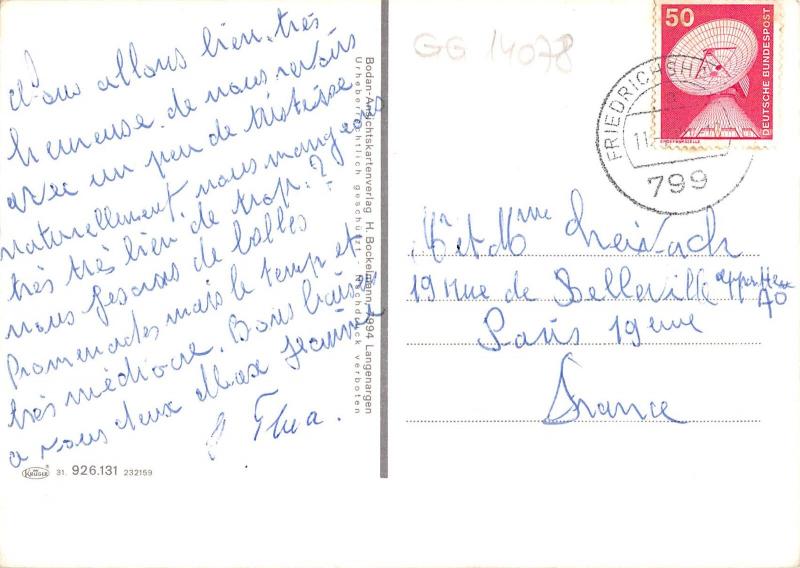 Nous allons bien, très
heureuse de nous revoir
avec un peu de tristesse
naturellement, nous mangeons
très très bien de trop?
nous fesons de belles
Promenades mais le temp et
très médiocre. Bons baisers
a vous deux Max Jeanne
Bodan-Ansichtskartenverlag H. Bockelmann, 7994 Langenargen
Urheberrechtlich geschützt - Nachdruck verboten
KRÜGER
31. 926.131 232159
GG 14078
50
DEUTSCHE BUNDESPOST
ERDEFUNKSTELLE
FRIEDRICHSHA
11.
799
Mr et Mme
19 rue de Belleville
A0
Paris 19eme
France